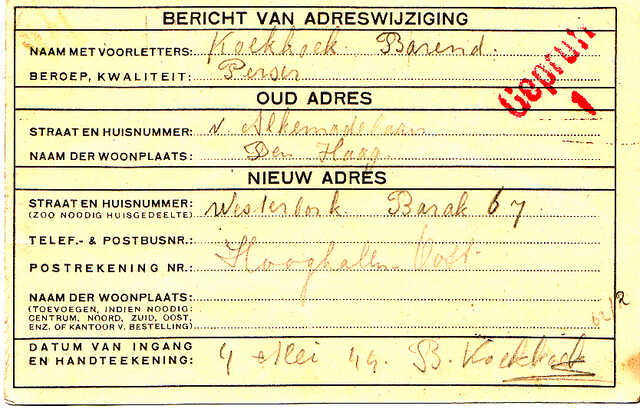 BERICHT VAN ADRESWIJZIGING
NAAM MET VOORLETTERS: Koekkoek Barend.
BEROEP, KWALITEIT: Perser
Geprunt 1
OUD ADRES
STRAAT EN HUISNUMMER: v. Alkemadelaan
NAAM DER WOONPLAATS: Den Haag
NIEUW ADRES
STRAAT EN HUISNUMMER: Westerbork Barak 67
(ZOO NOODIG HUISGEDEELTE)
TELEF.- & POSTBUSNR.:
POSTREKENING NR.: Hooghalen-Oost.
NAAM DER WOONPLAATS:
(TOEVOEGEN, INDIEN NOODIG:
CENTRUM, NOORD, ZUID, OOST,
ENZ. OF KANTOOR V. BESTELLING)
DATUM VAN INGANG
EN HANDTEEKENING: 4 Mei 44. B. Koekkoek